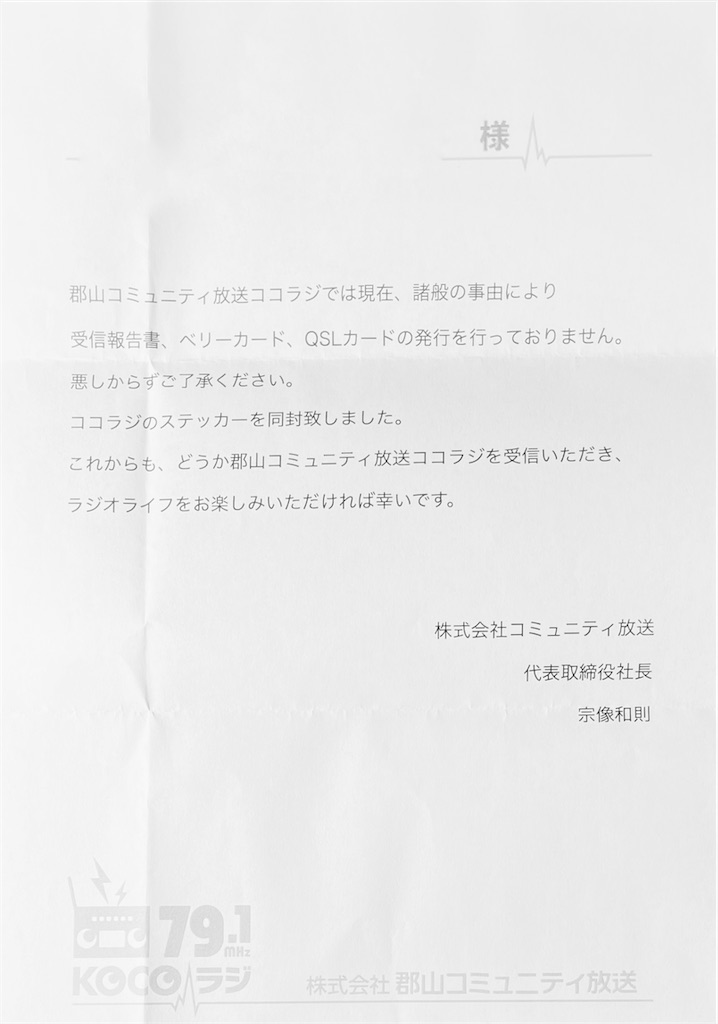 様
郡山コミュニティ放送ココラジでは現在、諸般の事由により
受信報告書、ベリーカード、QSLカードの発行を行っておりません。
悪しからずご了承ください。
ココラジのステッカーを同封致しました。
これからも、どうか郡山コミュニティ放送ココラジを受信いただき、
ラジオライフをお楽しみいただければ幸いです。
株式会社コミュニティ放送
代表取締役社長
宗像和則
79.1
MHz
KOCOラジ
株式会社 郡山コミュニティ放送